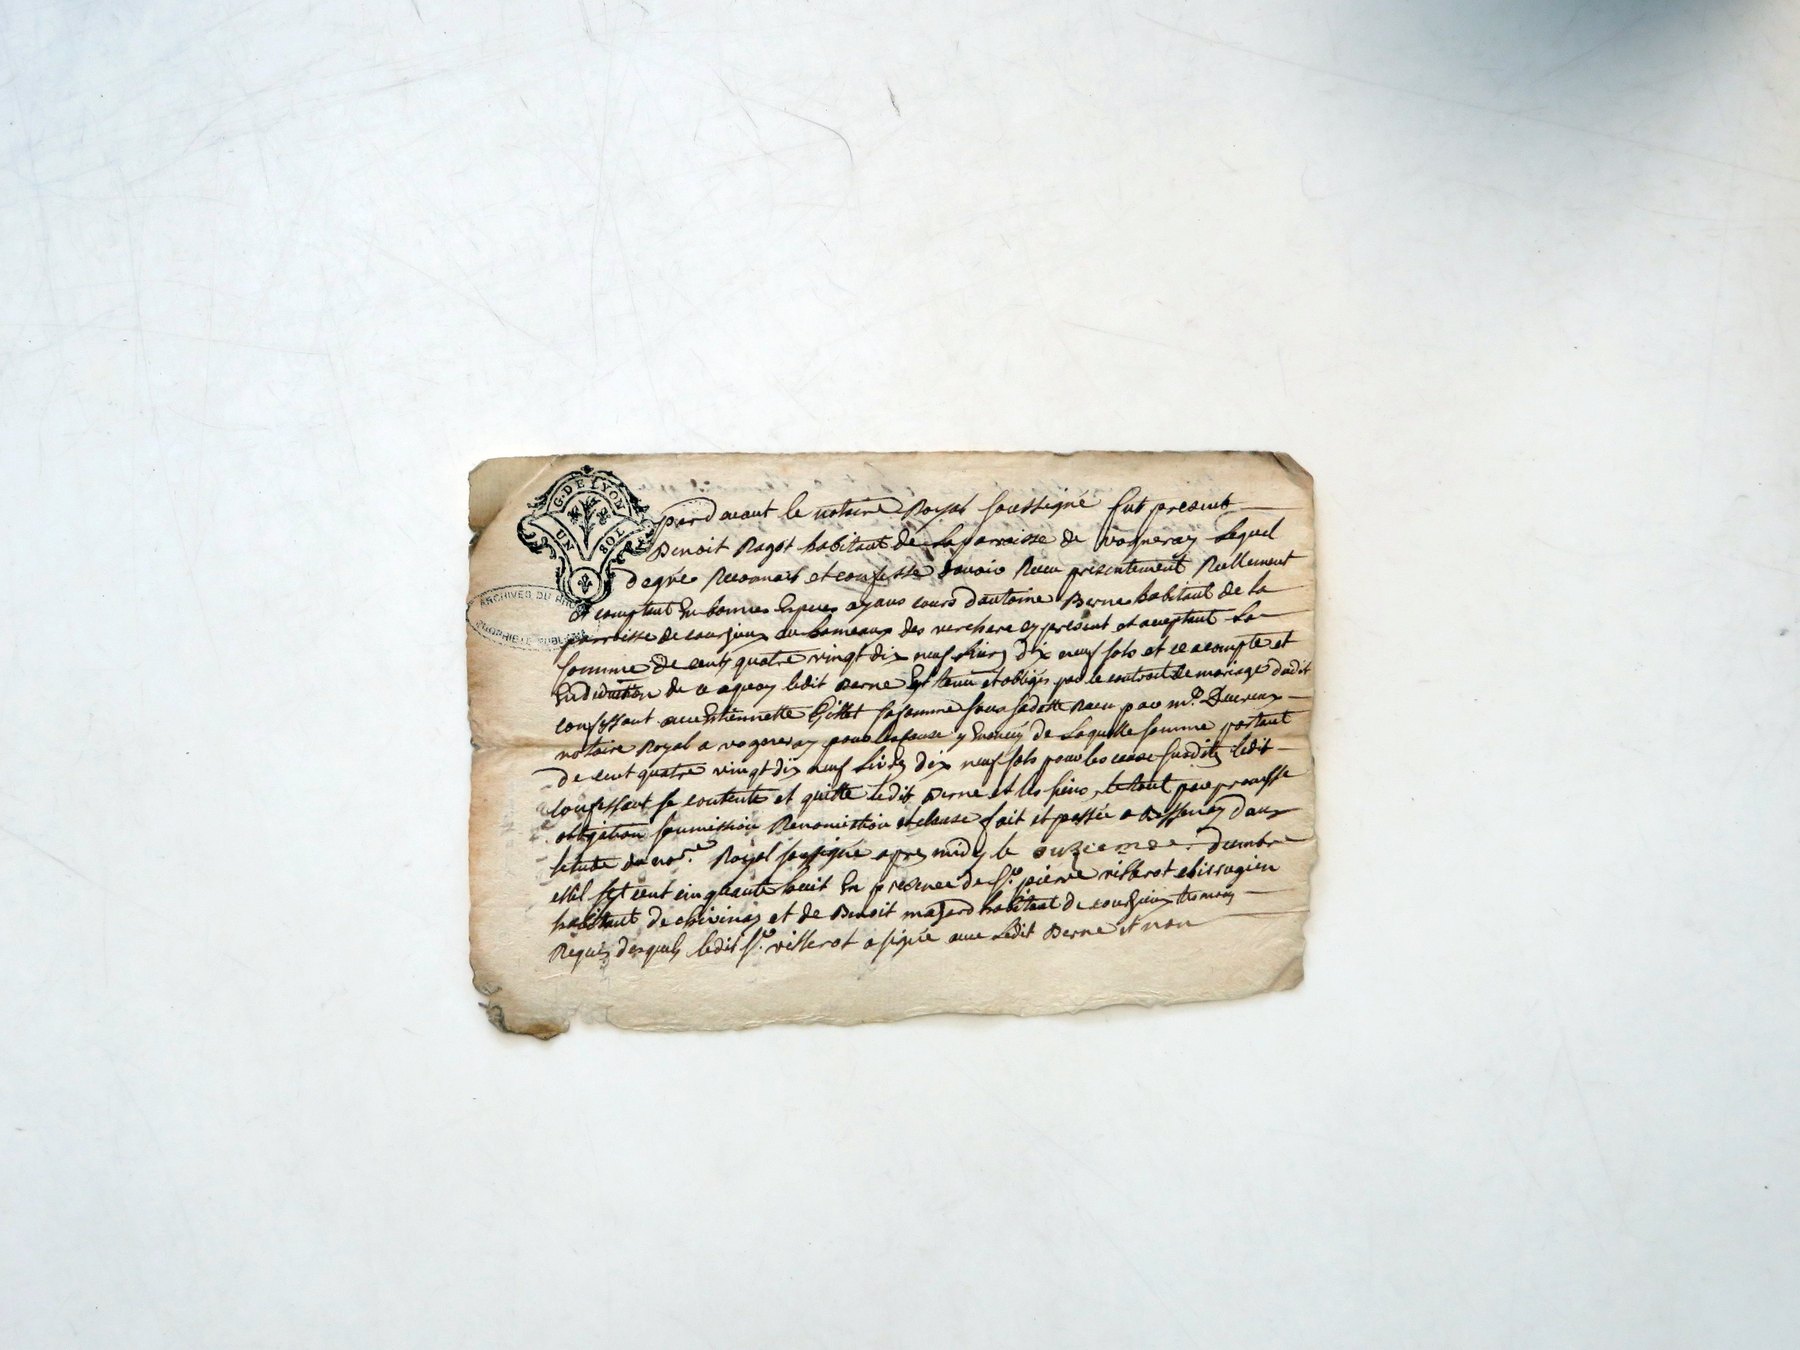 G. DE LYON
UN SOL
ARCHIVES DU RHÔNE
PROPRIÉTÉ PUBLIQUE
pardevant le notaire Royal soussigné fut present
Benoit Ragot habitant de la parroisse de vogneray lequel
de gré Reconnait et confesse davoir Receu presentement Reellement
et comptant En bonnes Especes ayans cours dantoine Berne habitant de la
parroisse de courzieux au hameaux des verchere cy present et aceptant La
somme de cent quatre vingt dix neuf livres dix neuf sols et ce acompte et
En deduction de ce aquoy ledit Berne Est tenu et obligés par le contrat de mariage dudit
confessant avec Estiennette Gillet sa femme sous sa datte Receu par me. Ducreux
notaire Royal a vogneray pour les cause y Enoncés de laquelle somme portant
de cent quatre vingt dix neuf Livres dix neuf sols pour les cause susdites ledit
confessant se contente et quitte ledit Berne et les siens, le tout par promesse
obligation soumission Renonciation et clause fait et passée a Bessenay dans
letude du nore. Royal soussigné apres midy le onzieme decembre
mil sept cent cinquante huit En presence de sr. pierre villerot chirurgien
habitant de chivinay et de Benoit mazard habitant de courzieux temoins
Requis desquels ledit sr. villerot a signé avec ledit Berne et non